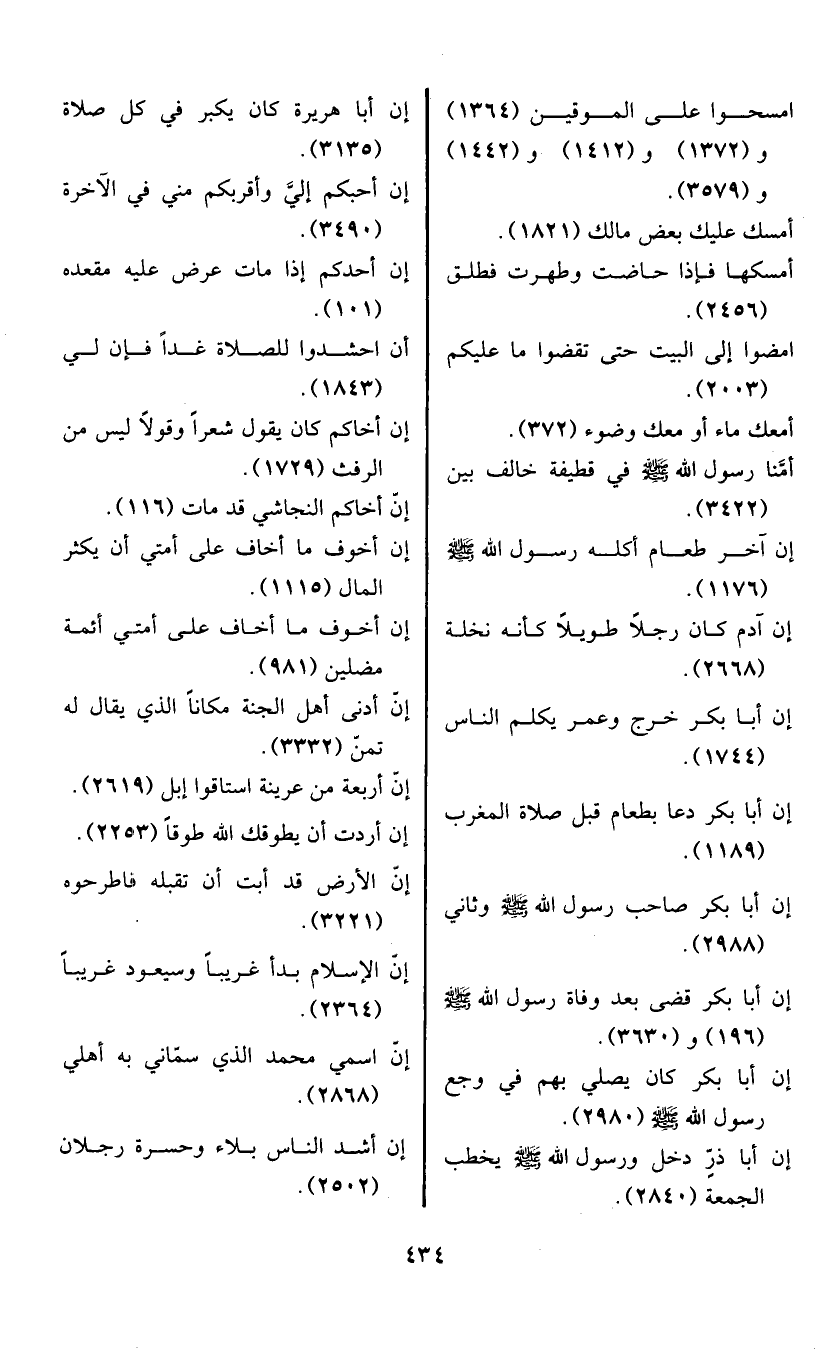 امسحوا على الموقين (١٣٦٤)
و (١٣٧٢) و (١٤١٢) و (١٤٤٢)
و (٣٥٧٩).
أمسك عليك بعض مالك (١٨٢١).
أمسكها فإذا حاضت وطهرت فطلق
(٢٤٥٦).
امضوا إلى البيت حتى تقضوا ما عليكم
(٢٠٠٣).
أمعك ماء أو معك وضوء (٣٧٢).
أمَّنا رسول الله ﷺ في قطيفة خالف بين
(٣٤٢٢).
إن آخر طعام أكله رسول الله ﷺ
(١١٧٦).
إن آدم كان رجلاً طويلاً كأنه نخلة
(٢٦٦٨).
إن أبا بكر خرج وعمر يكلم الناس
(١٧٤٤).
إن أبا بكر دعا بطعام قبل صلاة المغرب
(١١٨٩).
إن أبا بكر صاحب رسول الله ﷺ وثاني
(٢٩٨٨).
إن أبا بكر قضى بعد وفاة رسول الله ﷺ
(١٩٦) و (٣٦٣٠).
إن أبا بكر كان يصلي بهم في وجع
رسول الله ﷺ (٢٩٨٠).
إن أبا ذرّ دخل ورسول الله ﷺ يخطب
الجمعة (٢٨٤٠).
إن أبا هريرة كان يكبر في كل صلاة
(٣١٣٥).
إن أحبكم إليَّ وأقربكم مني في الآخرة
(٣٤٩٠).
إن أحدكم إذا مات عرض عليه مقعده
(١٠١).
أن احشدوا للصلاة غداً فإن لي
(١٨٤٣).
إن أخاكم كان يقول شعراً وقولاً ليس من
الرفث (١٧٢٩).
إنّ أخاكم النجاشي قد مات (١١٦).
إن أخوف ما أخاف على أمتي أن يكثر
المال (١١١٥).
إن أخوف ما أخاف على أمتي أئمة
مضلين (٩٨١).
إنّ أدنى أهل الجنة مكاناً الذي يقال له
تمنّ (٣٣٣٢).
إنّ أربعة من عرينة استاقوا إبل (٢٦١٩).
إن أردت أن يطوقك الله طوقاً (٢٢٥٣).
إنّ الأرض قد أبت أن تقبله فاطرحوه
(٣٢٢١).
إنّ الإسلام بدأ غريباً وسيعود غريباً
(٢٣٦٤).
إنّ اسمي محمد الذي سمّاني به أهلي
(٢٨٦٨).
إن أشد الناس بلاء وحسرة رجلان
(٢٥٠٢).
٤٣٤